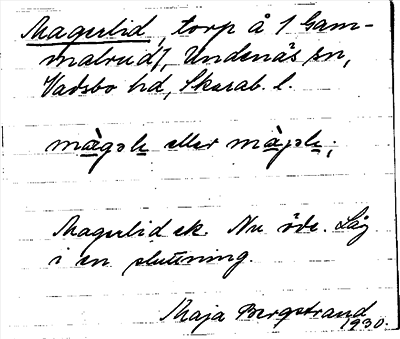 Magulid, torp å 1 Gam-
malrud 7, Undenäs sn,
Vadsbo hd, Skarab. l.
màgəle eller màgəle;
Magulid ek. Nu öde. Låg
i en sluttning.
Maja Bergstrand
1930.